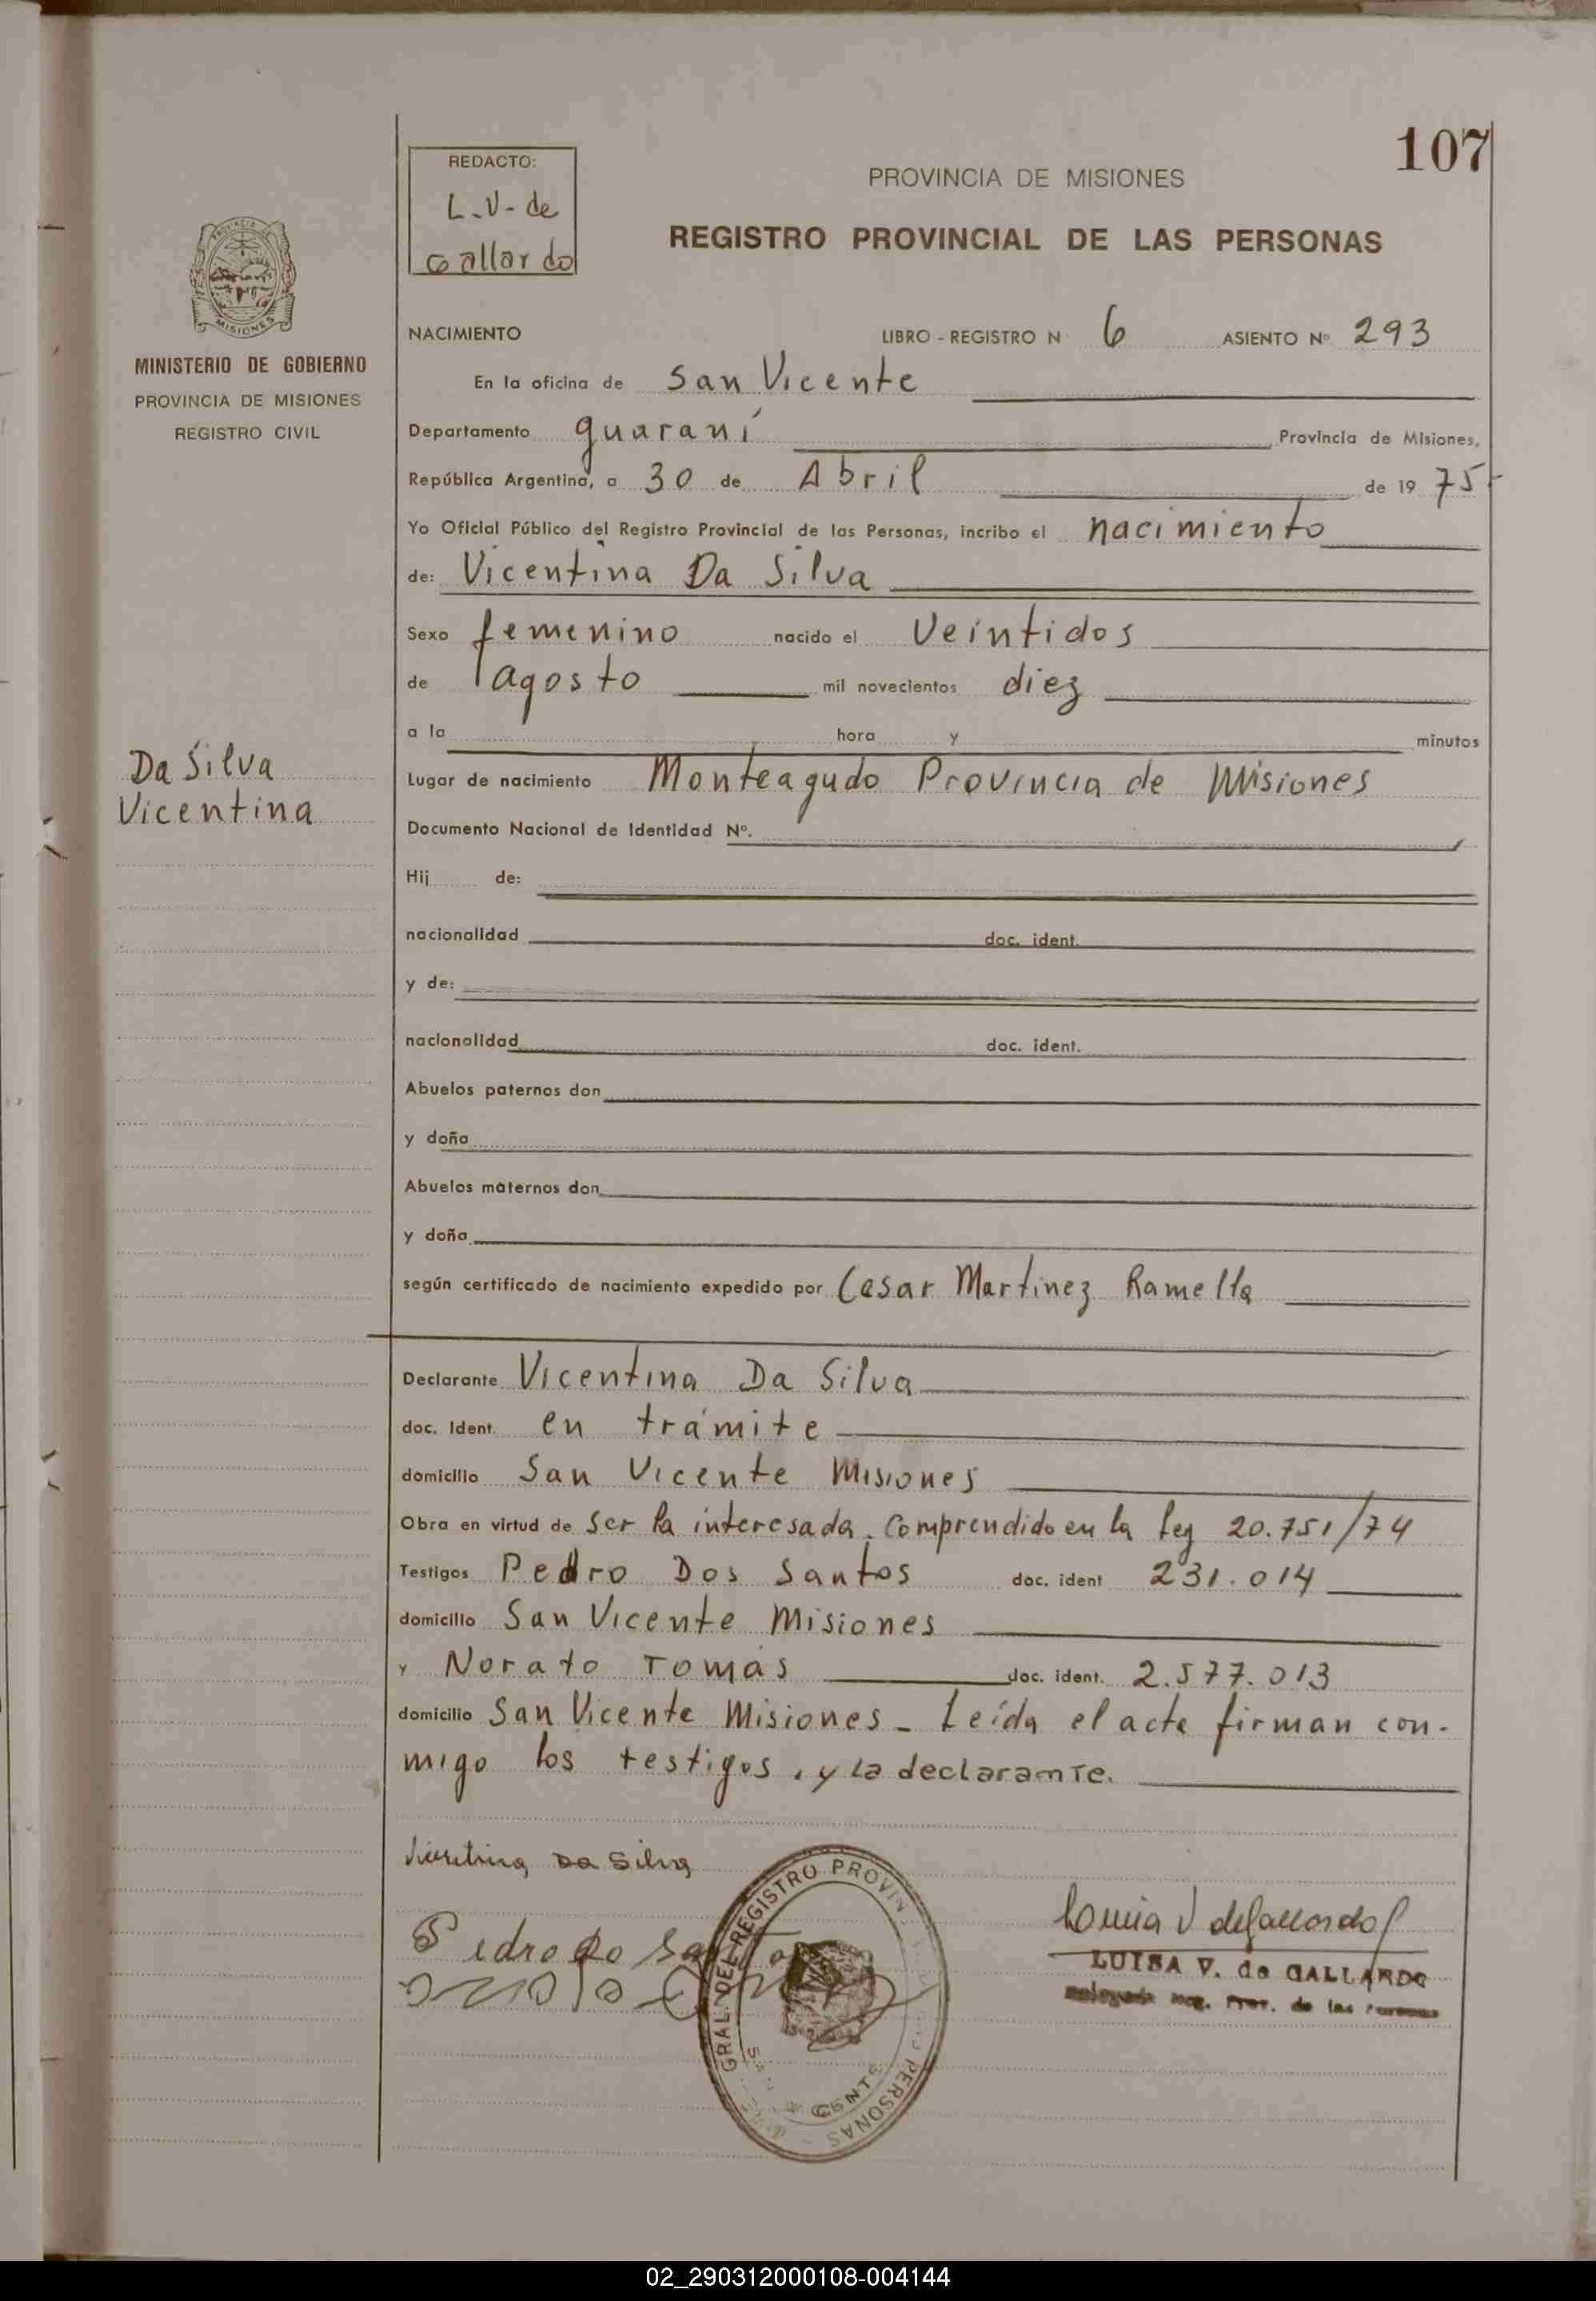 107
REDACTO:
L.V. de
Gallardo
PROVINCIA DE MISIONES
REGISTRO PROVINCIAL DE LAS PERSONAS
MISIONES
MINISTERIO DE GOBIERNO
PROVINCIA DE MISIONES
REGISTRO CIVIL
NACIMIENTO LIBRO - REGISTRO N 6 ASIENTO Nº 293
En la oficina de San Vicente
Departamento guaraní Provincia de Misiones,
República Argentina, a 30 de Abril de 19 75
Yo Oficial Público del Registro Provincial de las Personas, incribo el nacimiento
de: Vicentina Da Silva
Sexo femenino nacido el Veintidos
de agosto mil novecientos diez
a la hora y minutos
Da Silva
Vicentina
Lugar de nacimiento Monteagudo Provincia de Misiones
Documento Nacional de Identidad Nº.
Hij de:
nacionalidad doc. ident.
y de:
nacionalidad doc. ident.
Abuelos paternos don
y doña
Abuelos maternos don
y doña
según certificado de nacimiento expedido por Cesar Martinez Ramella
Declarante Vicentina Da Silva
doc. Ident. en trámite
domicilio San Vicente Misiones
Obra en virtud de ser la interesada. Comprendido en la Ley 20.751/74
Testigos Pedro Dos Santos doc. ident 231.014
domicilio San Vicente Misiones
y Norato Tomás doc. ident. 2.577.013
domicilio San Vicente Misiones - Leída el acta firman con-
migo los testigos, y la declarante.
Vicentina Da Silva
Pedro do Santo
GRAL. DEL REGISTRO PROVIN PERSONAS
LUISA V. de GALLARDO
Delegada Reg. Prov. de las Personas
02_290312000108-004144